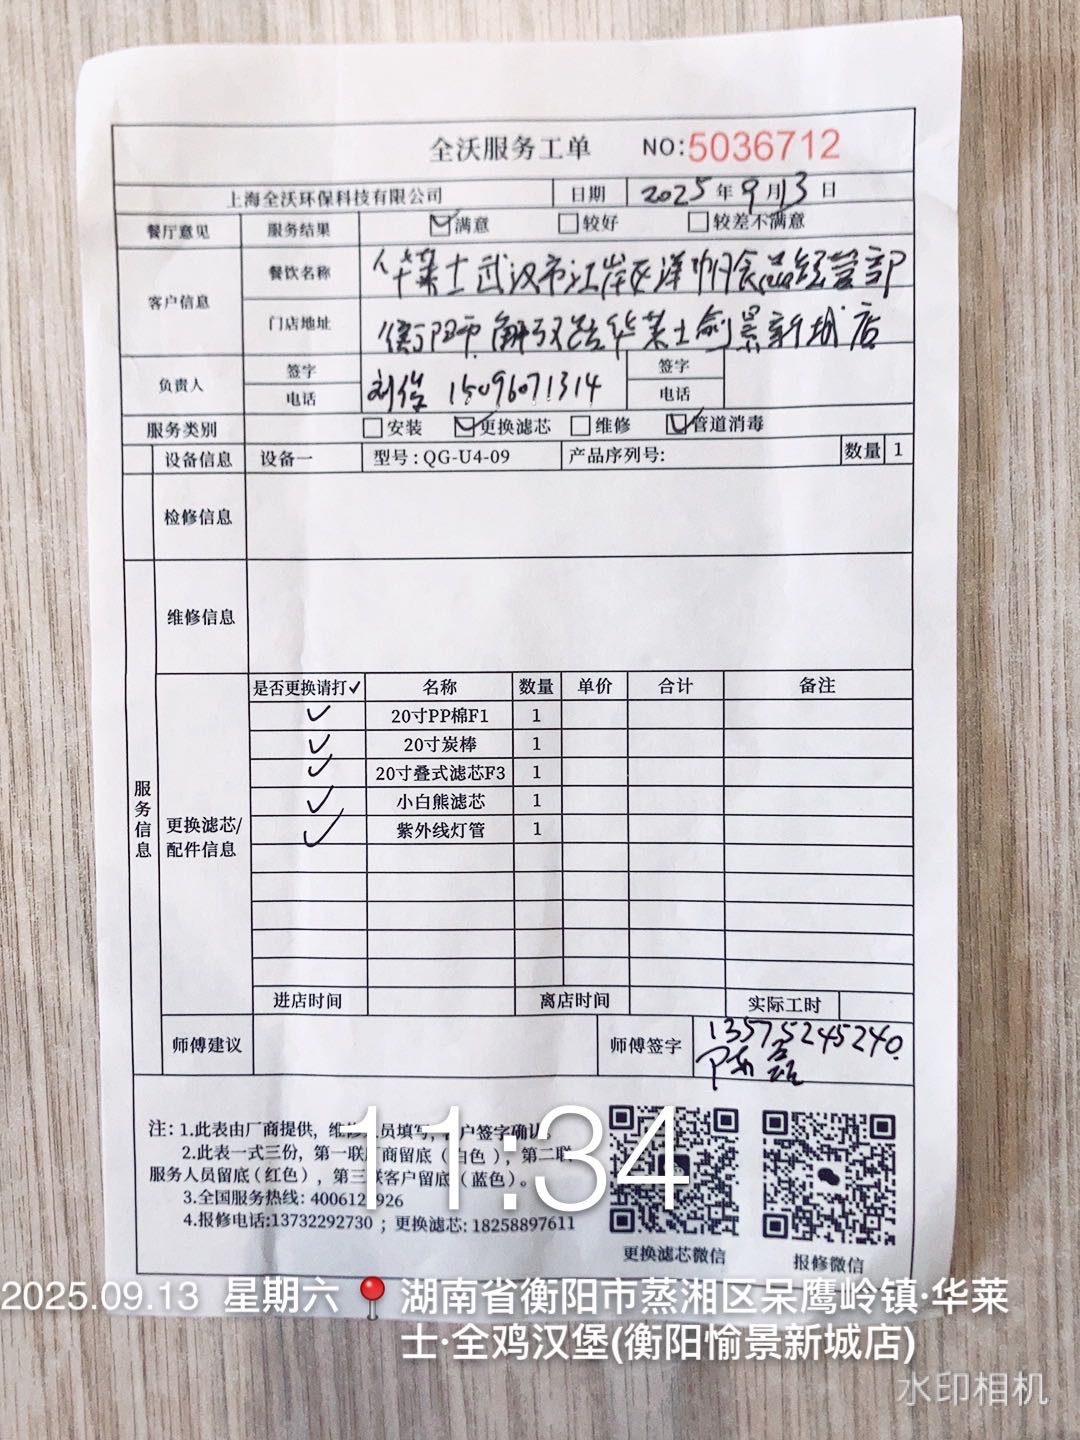 全沃服务工单 NO:5036712
上海全沃环保科技有限公司 日期 2025年9月13日
餐厅意见 服务结果 满意 较好 较差不满意
客户信息
餐饮名称 华莱士武汉市江岸区洋帆食品经营部
门店地址 衡阳市解放路华莱士愉景新城店
负责人 签字 刘 签字
电话 15096071314 电话
服务类别 安装 更换滤芯 维修 管道消毒
设备信息 设备一 型号:QG-U4-09 产品序列号: 数量 1
检修信息
维修信息
服务信息
更换滤芯/
配件信息
是否更换请打✓ 名称 数量 单价 合计 备注
✓ 20寸PP棉F1 1
✓ 20寸炭棒 1
✓ 20寸叠式滤芯F3 1
✓ 小白熊滤芯 1
✓ 紫外线灯管 1
进店时间 离店时间 实际工时
师傅建议 师傅签字 13575245240
陈磊
注: 1.此表由厂商提供, 维修人员填写, 客户签字确认。
2.此表一式三份, 第一联厂商留底(白色), 第二联
服务人员留底(红色), 第三联客户留底(蓝色)。
3.全国服务热线:
4.报修电话:13732292730 ; 更换滤芯: 18258897611
更换滤芯微信 报修微信
11:34
2025.09.13 星期六 湖南省衡阳市蒸湘区呆鹰岭镇·华莱
士·全鸡汉堡(衡阳愉景新城店)
水印相机